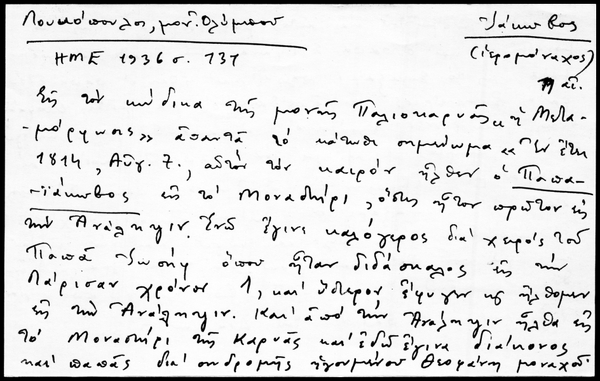 Λουκόπουλος, μον. Ὀλύμπου
Ἰάκωβος
ΗΜΕ 1936 σ. 131
(ἱερομόναχος)
αἰ.
Εἰς τὸν κώδικα τῆς μονῆς Παλιοκαρυᾶς «ἡ Μετα-
-μόρφωσις» ἀπαντᾶ τὸ κάτωθι σημείωμα «Ἐν ἔτει
1814, Αὐγ. 7, αὐτὸν τὸν καιρὸν ἦλθεν ὁ Παπα-
-Ἰάκωβος εἰς τὸ Μοναστήρι, ὅστις ἦτον πρῶτον εἰς
τὴν Ἀνάληψιν. Ἐνῶ ἔγινε καλόγερος διὰ χειρὸς τοῦ
Παπᾶ Ἰωσήφ ὁποῦ ἦταν διδάσκαλος εἰς τὴν
Λάρισαν χρόνον 1, καὶ ὕστερον ἔφυγεν κ ἤλθομεν
εἰς τὴν Ἀνάληψιν. Καὶ ἀπὸ τὴν Ἀνάληψιν ἦλθα εἰς
τὸ Μοναστήρι τῆς Καρυᾶς καὶ ἐδῶ ἔγινα διάκονος
καὶ παπᾶς διὰ συνδρομῆς ἡγουμένου Θεοφάνη μοναχοῦ